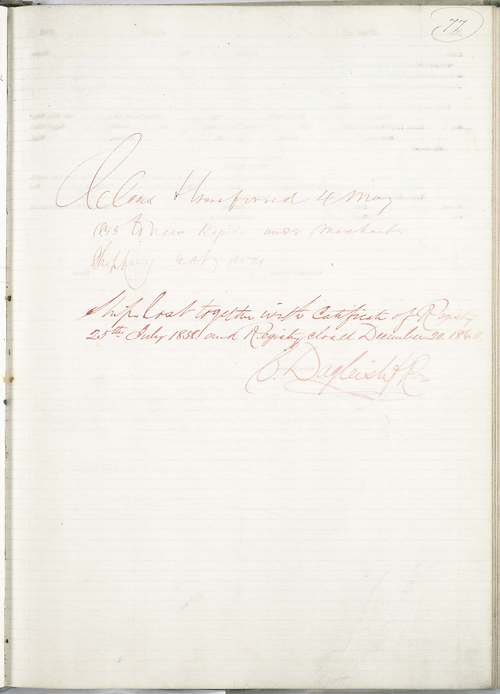 77
Closed & transferred 4 May
to New Register under Merchant
Shipping Act of
Ship Lost together with Certificate of Registry
25th July 1838 and Registry closed December 20. 1840.